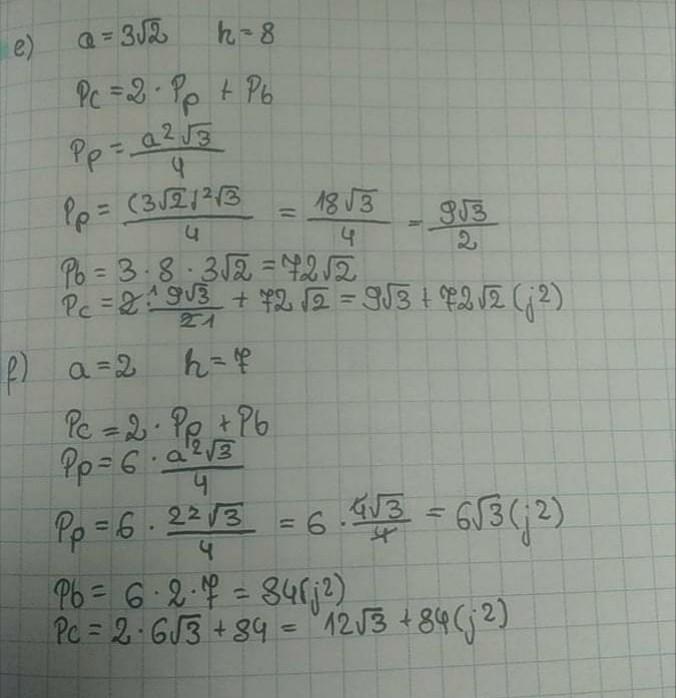 e) a = 3√2 h = 8
Pc = 2 · Pp + Pb
Pp = a²√3/4
Pp = (3√2)²√3/4 = 18√3/4 = 9√3/2
Pb = 3 · 8 · 3√2 = 72√2
Pc = 2¹ · 9√3/21 + 72√2 = 9√3 + 72√2 (j²)
f) a = 2 h = 7
Pc = 2 · Pp + Pb
Pp = 6 · a²√3/4
Pp = 6 · 2²√3/4 = 6 · 4√3/4 = 6√3 (j²)
Pb = 6 · 2 · 7 = 84 (j²)
Pc = 2 · 6√3 + 84 = 12√3 + 84 (j²)